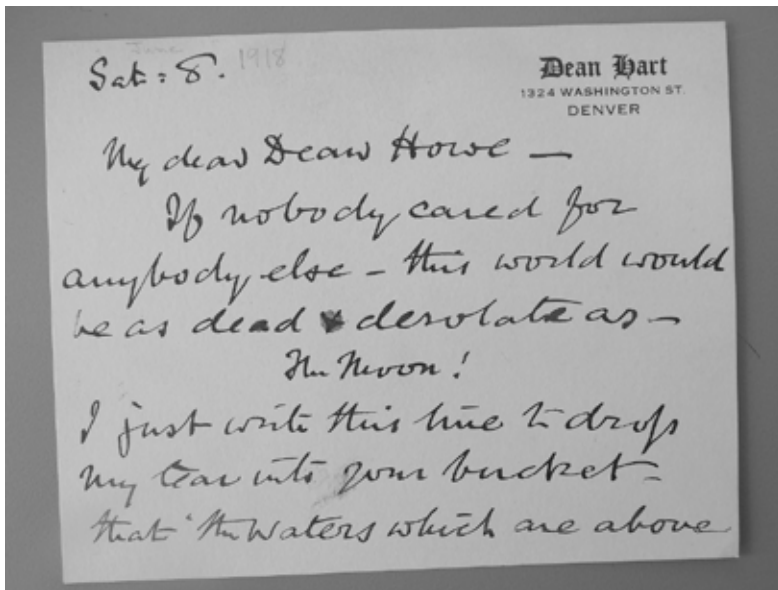 June 1918
Sat: 8.
Dean Hart
1324 WASHINGTON ST.
DENVER
My dear Dean Howe —
If nobody cared for
anybody else – this world would
be as dead & desolate as –
The Moon!
I just write this line to drop
my tear into your bucket –
that 'the Waters which are above